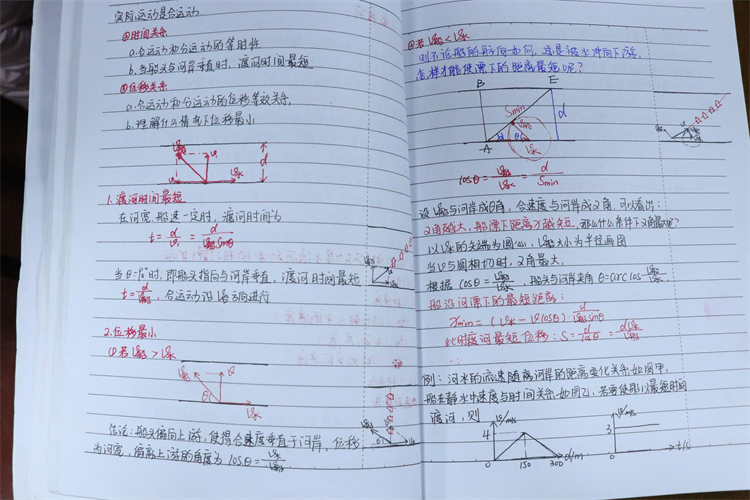 实际运动是合运动.
②时间关系
a.合运动和分运动的等时性
b.当船头与河岸垂直时,渡河时间最短
③位移关系
a.合运动和分运动的位移等效关系.
b.理解什么情况下位移最小
V船
V水
d
1.渡河时间最短
在河宽、船速一定时,渡河时间为
t = d/V₁ = d/V船sinθ
当θ=90°时,即船头指向与河岸垂直,渡河时间最短
t = d/V船,合运动沿V方向进行
2.位移最小
①若V船>V水
V船
V
θ
V水
结论:船头偏向上游,使得合速度垂直于河岸,位移
为河宽,偏离上游的角度为 cosθ = V水/V船
②若V船<V水
则不论船的航向如何,总是被水冲向下游,
怎样才能使漂下的距离最短呢?
B E
Smin
V船
d
A
α θ
V水
cosθ = V船/V水 = d/Smin
设V船与河岸成θ角,合速度与河岸成α角,可以看出:
α角越大,船漂下距离x越短,那么什么条件下α角最大呢?
以V水的矢端为圆心,V船大小为半径画圆
当V与圆相切时,α角最大,
根据 cosθ = V船/V水,船头与河岸夹角 θ=arccos V船/V水
船沿河漂下的最短距离:
xmin = (V水 - V船cosθ) d/V船sinθ
此时渡河最短位移:S = d/cosθ = dV水/V船
例:河水的流速随离河岸的距离变化关系如图甲,
船在静水中速度与时间关系如图乙,若要使船以最短时间
渡河,则
V/m/s
4
0 150 300 d/m
V/m/s
3
0 t/s